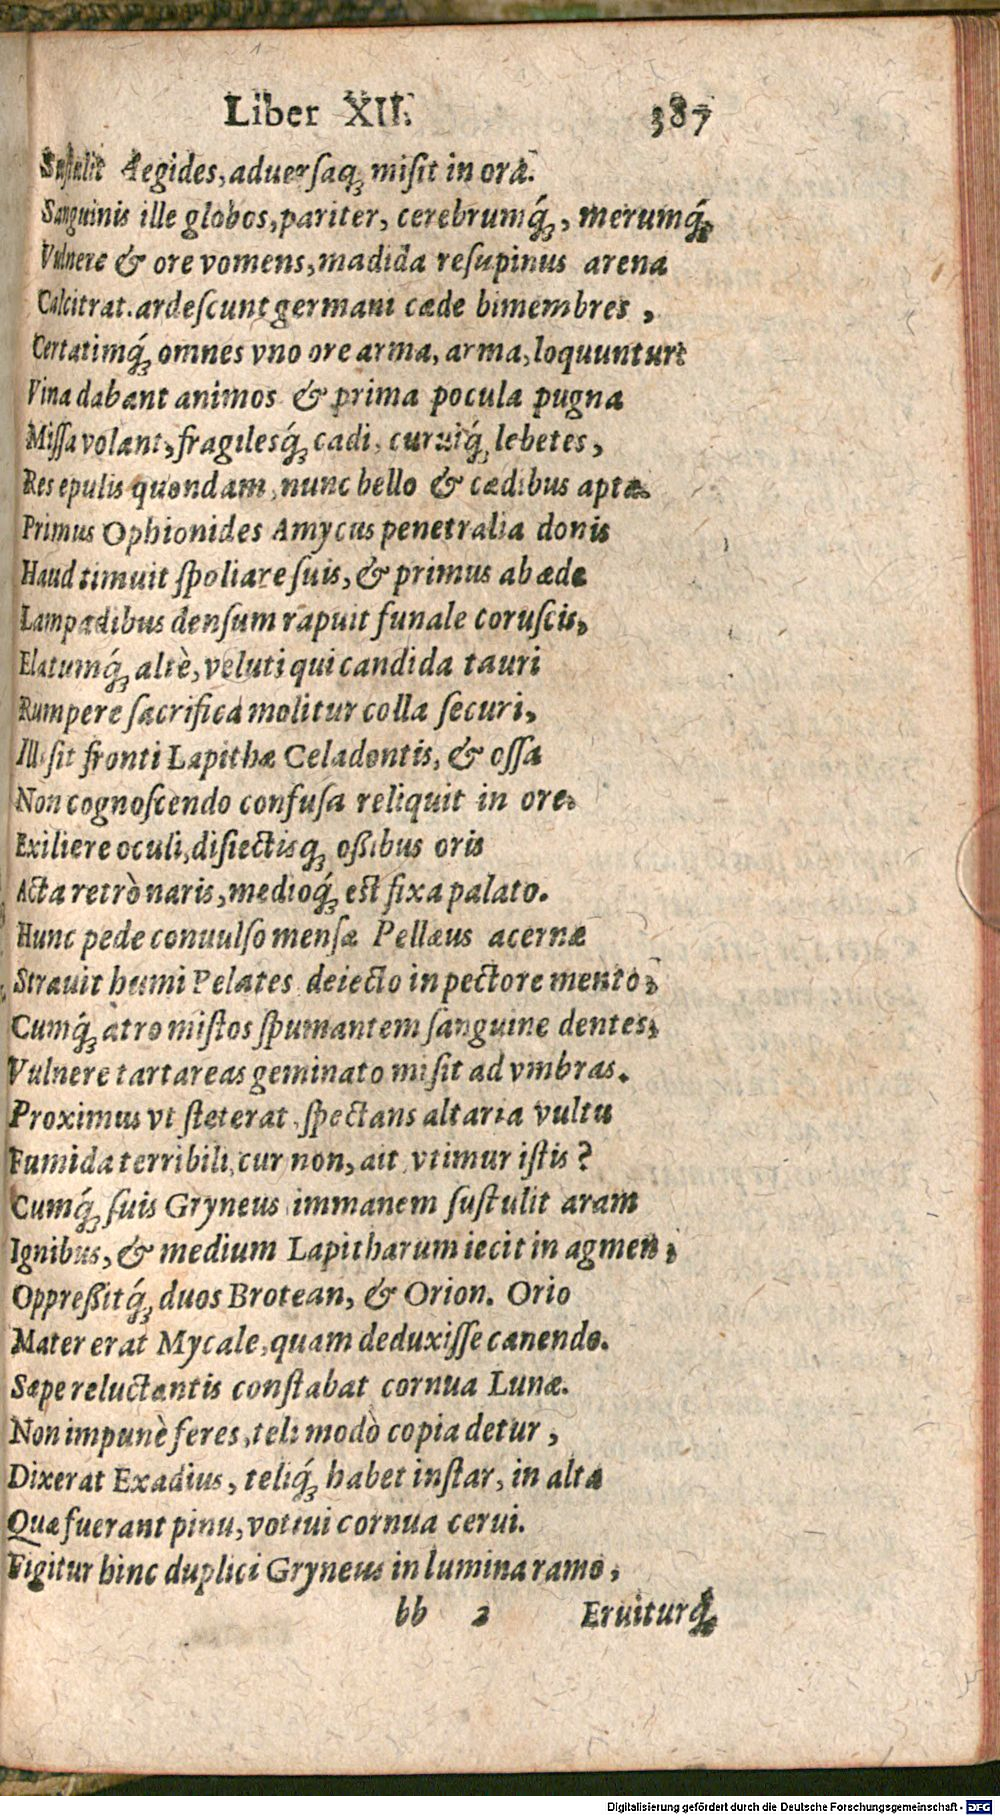 Liber XII. 387
Sustulit Aegides, aduersaq́; misit in ora.
Sanguinis ille globos, pariter, cerebrumq́;, merumq́;
Vulnere & ore vomens, madida resupinus arena
Calcitrat. ardescunt germani cæde bimembres,
Certatimq́; omnes vno ore arma, arma, loquuntur:
Vina dabant animos & prima pocula pugna
Missa volant, fragilesq́; cadi, curuiq́; lebetes,
Res epulis quondam, nunc bello & cædibus aptæ.
Primus Ophionides Amycus penetralia donis
Haud timuit spoliare suis, & primus ab æde
Lampadibus densum rapuit funale coruscis,
Elatumq́; altè, veluti qui candida tauri
Rumpere sacrifica molitur colla securi,
Illisit fronti Lapithæ Celadontis, & ossa
Non cognoscendo confusa reliquit in ore.
Exiliere oculi, disiectisq; ossibus oris
Acta retrò naris, medioq́; est fixa palato.
Hunc pede conuulso mensæ Pellæus acernæ
Strauit humi Pelates deiecto in pectore mento;
Cumq́; atro mistos spumantem sanguine dentes,
Vulnere tartareas geminato misit ad vmbras.
Proximus vt steterat, spectans altaria vultu
Fumida terribili, cur non, ait, vtimur istis?
Cumq́; suis Gryneus immanem sustulit aram
Ignibus, & medium Lapitharum iecit in agmen;
Oppressitq́; duos Brotean, & Orion. Orio
Mater erat Mycale, quam deduxisse canendo.
Sæpe reluctantis constabat cornua Lunæ.
Non impunè feres, teli modò copia detur,
Dixerat Exadius, teliq́; habet instar, in alta
Quæ fuerant pinu, votiui cornua cerui.
Figitur hinc duplici Gryneus in lumina ramo,
bb 2 Eruiturq́;
Digitalisierung gefördert durch die Deutsche Forschungsgemeinschaft - DFG